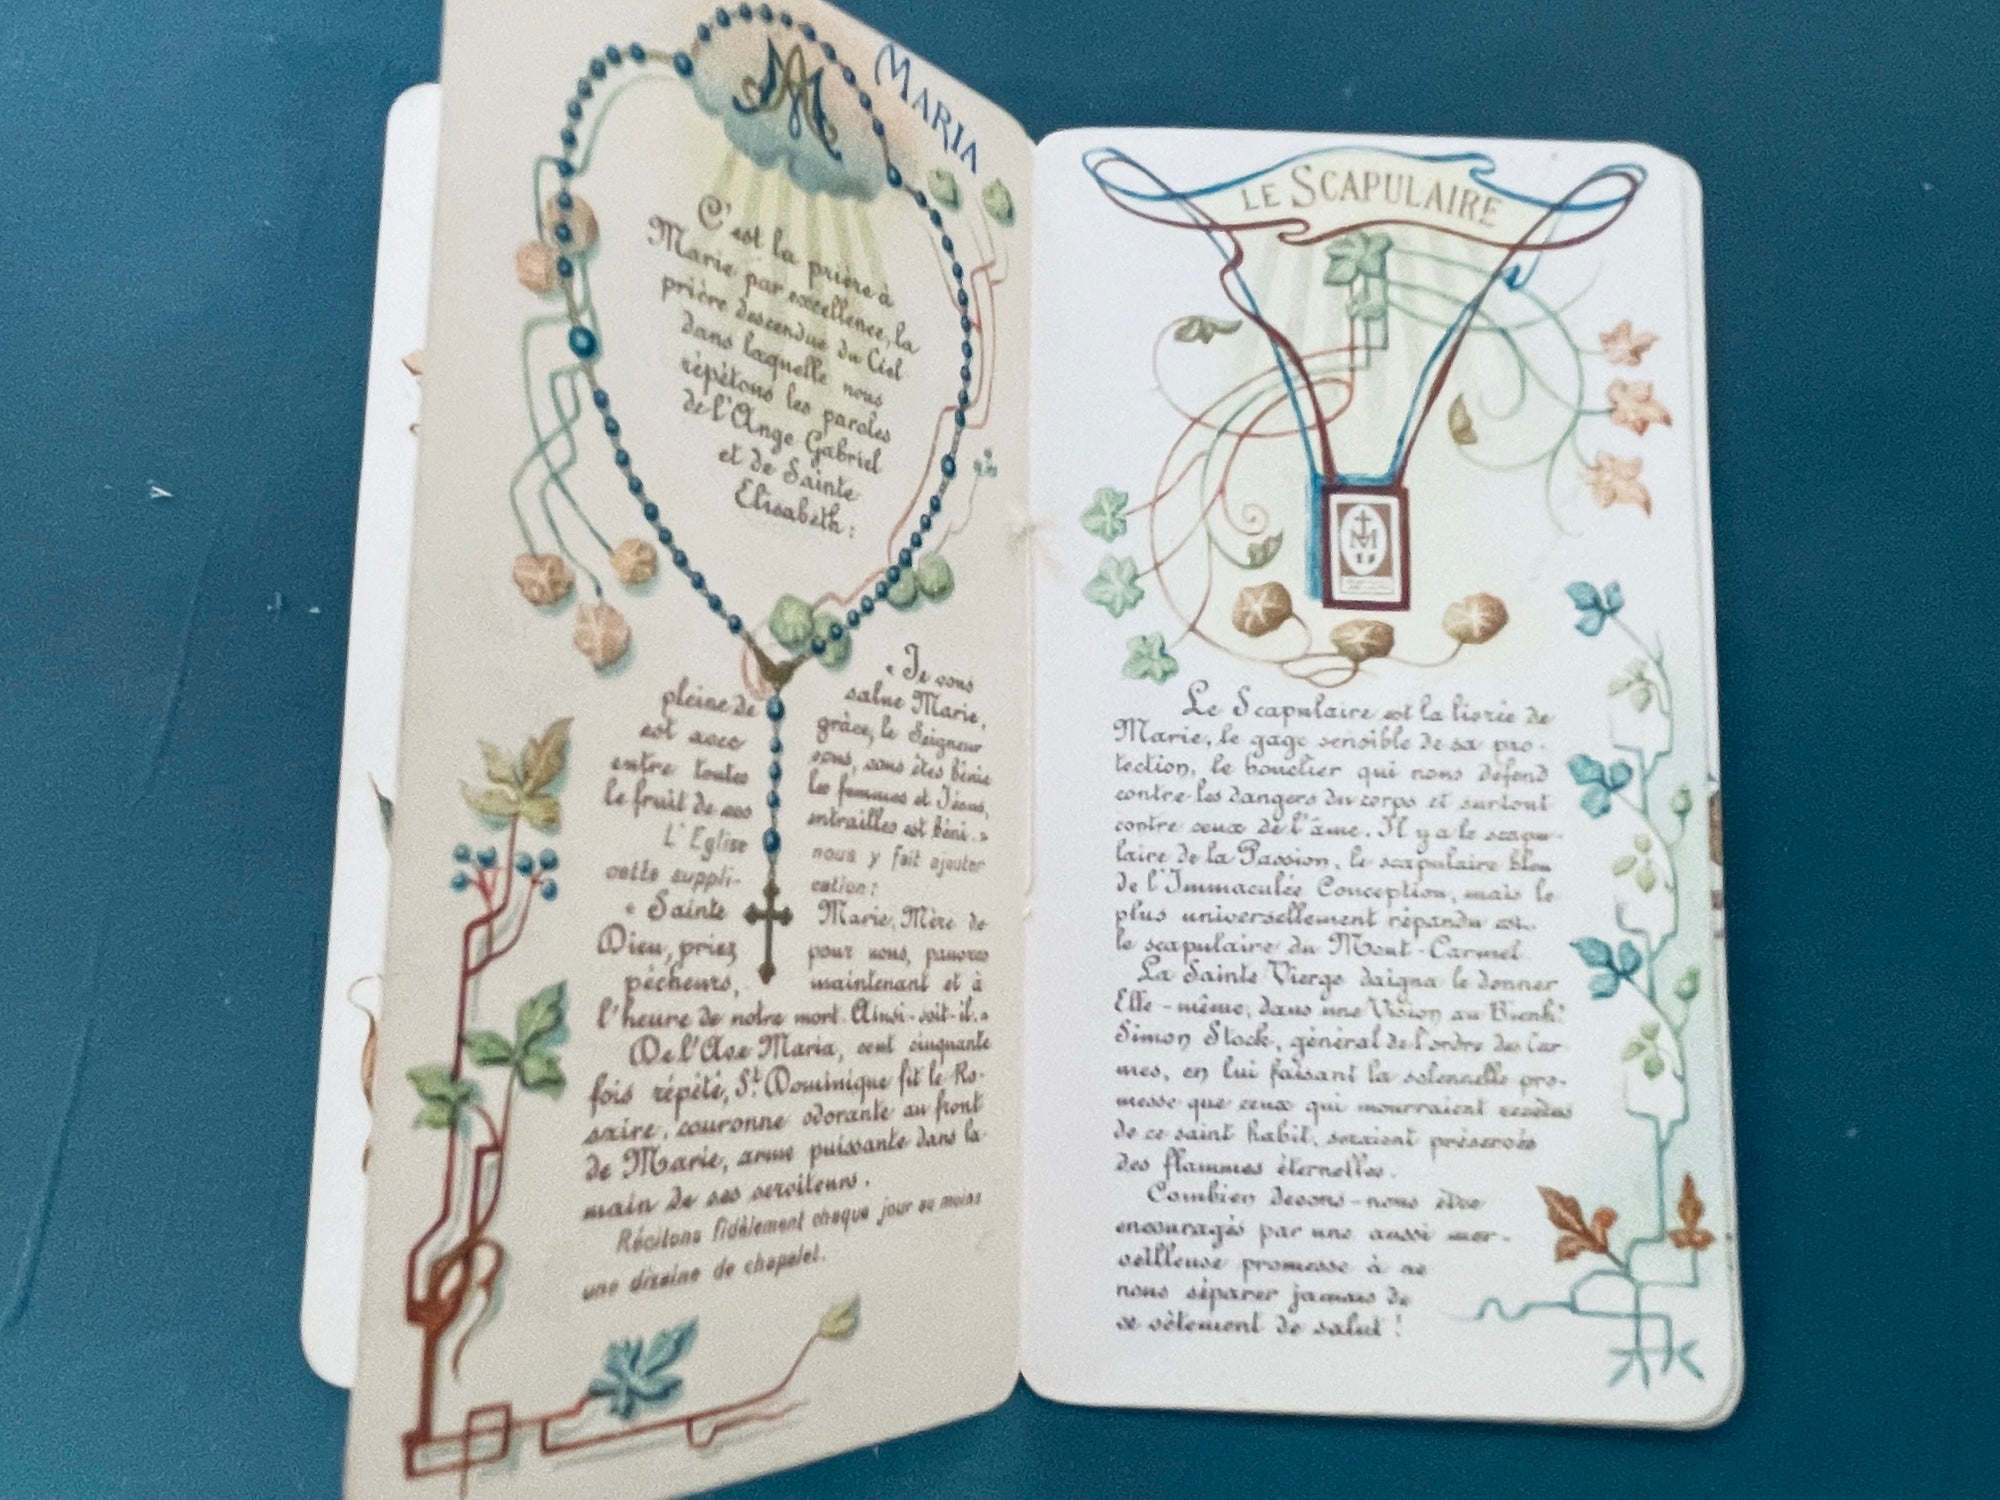 MARIA
C'est la prière à
Marie par excellence, la
prière descendue du Ciel
dans laquelle nous
répétons les paroles
de l'Ange Gabriel
et de Sainte
Elisabeth :
« Je vous
salue Marie,
pleine de grâce, le Seigneur
est avec vous, vous êtes bénie
entre toutes les femmes et Jésus,
le fruit de vos entrailles est béni. »
L'Eglise nous y fait ajouter
cette suppli- cation :
« Sainte Marie, Mère de
Dieu, priez pour nous, pauvres
pécheurs, maintenant et à
l'heure de notre mort. Ainsi-soit-il. »
De l'Ave Maria, cent cinquante
fois répété, St Dominique fit le Ro-
saire, couronne odorante au front
de Marie, arme puissante dans la
main de ses serviteurs.
Récitons fidèlement chaque jour au moins
une dizaine de chapelet.
LE SCAPULAIRE
M
Le Scapulaire est la livrée de
Marie, le gage sensible de sa pro-
tection, le bouclier qui nous défend
contre les dangers du corps et surtout
contre ceux de l'âme. Il y a le scapu-
laire de la Passion, le scapulaire bleu
de l'Immaculée Conception, mais le
plus universellement répandu est
le scapulaire du Mont-Carmel.
La Sainte Vierge daigna le donner
Elle-même, dans une Vision au Bienh!
Simon Stock, général de l'ordre des Car-
mes, en lui faisant la solennelle pro-
messe que ceux qui mourraient revêtus
de ce saint habit, seraient préservés
des flammes éternelles.
Combien devons-nous être
encouragés par une aussi mer-
veilleuse promesse à ne
nous séparer jamais de
ce vêtement de salut !